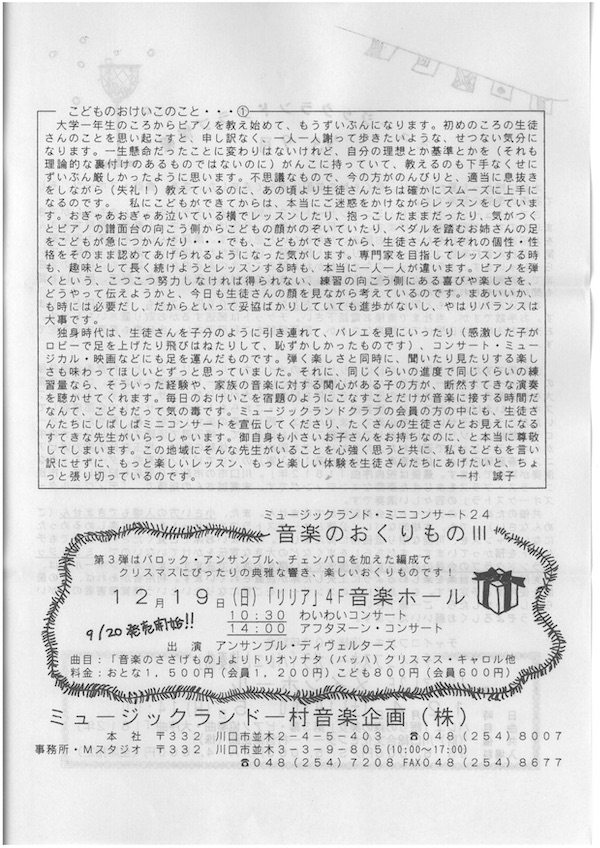 こどものおけいこのこと・・・①
大学一年生のころからピアノを教え始めて、もうずいぶんになります。初めのころの生徒
さんのことを思い起こすと、申し訳なく、一人一人謝って歩きたいような、せつない気分に
なります。一生懸命だったことに変わりはないけれど、自分の理想とか基準とかを（それも
理論的な裏付けのあるものではないのに）がんこに持っていて、教えるのも下手なくせに
ずいぶん厳しかったように思います。不思議なもので、今の方がのんびりと、適当に息抜き
をしながら（失礼！）教えているのに、あの頃より生徒さんたちは確かにスムーズに上手に
なるのです。　私にこどもができてからは、本当にご迷惑をかけながらレッスンをしています。
おぎゃあおぎゃあ泣いている横でレッスンしたり、抱っこしたままだったり、気がつく
とピアノの譜面台の向こう側からこどもの顔がのぞいていたり、ペダルを踏むお姉さんの足
をこどもが急につかんだり・・・でも、こどもができてから、生徒さんそれぞれの個性・性
格をそのまま認めてあげられるようになった気がします。専門家を目指してレッスンする時
も、趣味として長く続けようとレッスンする時も、本当に一人一人が違います。ピアノを弾
くという、こつこつ努力しなければ得られない、練習の向こう側にある喜びや楽しさを、
どうやって伝えようかと、今日も生徒さんの顔を見ながら考えているのです。まあいいか、
も時には必要だし、だからといって妥協ばかりしていても進歩がないし、やはりバランスは
大事です。
独身時代は、生徒さんを子分のように引き連れて、バレエを見にいったり（感激した子が
ロビーで足を上げたり飛びはねたりして、恥ずかしかったものです）、コンサート・ミュー
ジカル・映画などにも足を運んだものです。弾く楽しさと同時に、聞いたり見たりする楽し
さも味わってほしいとずっと思っていました。それに、同じくらいの進度で同じくらいの練
習量なら、そういった経験や、家族の音楽に対する関心がある子の方が、断然すてきな演奏
を聴かせてくれます。毎日のおけいこを宿題のようにこなすことだけが音楽に接する時間だ
なんて、こどもだって気の毒です。ミュージックランドクラブの会員の方の中にも、生徒さ
んたちにしばしばミニコンサートを宣伝してくださり、たくさんの生徒さんとお見えになる
すてきな先生がいらっしゃいます。御自身も小さいお子さんをお持ちなのに、と本当に尊敬
してしまいます。この地域にそんな先生がいることを心強く思うと共に、私もこどもを言い
訳にせずに、もっと楽しいレッスン、もっと楽しい体験を生徒さんたちにあげたいと、ちょ
っと張り切っているのです。　一村　誠子
ミュージックランド・ミニコンサート２４
音楽のおくりものⅢ
第３弾はバロック・アンサンブル、チェンバロを加えた編成で
クリスマスにぴったりの典雅な響き、楽しいおくりものです！
１２月１９日（日）「リリア」４Ｆ音楽ホール
１０：３０　わいわいコンサート
9/20 発売開始!!
１４：００　アフタヌーン・コンサート
出　演　アンサンブル・ディヴェルターズ
曲目：「音楽のささげもの」よりトリオソナタ（バッハ）クリスマス・キャロル他
料金：おとな１，５００円（会員１，２００円）こども８００円（会員６００円）
ミュージックランド一村音楽企画（株）
本　社　〒３３２　川口市並木２－４－５－４０３　☎０４８（２５４）８００７
事務所・Ｍスタジオ　〒３３２　川口市並木３－３－９－８０５(10:00～17:00)
☎０４８（２５４）７２０８　FAX０４８（２５４）８６７７